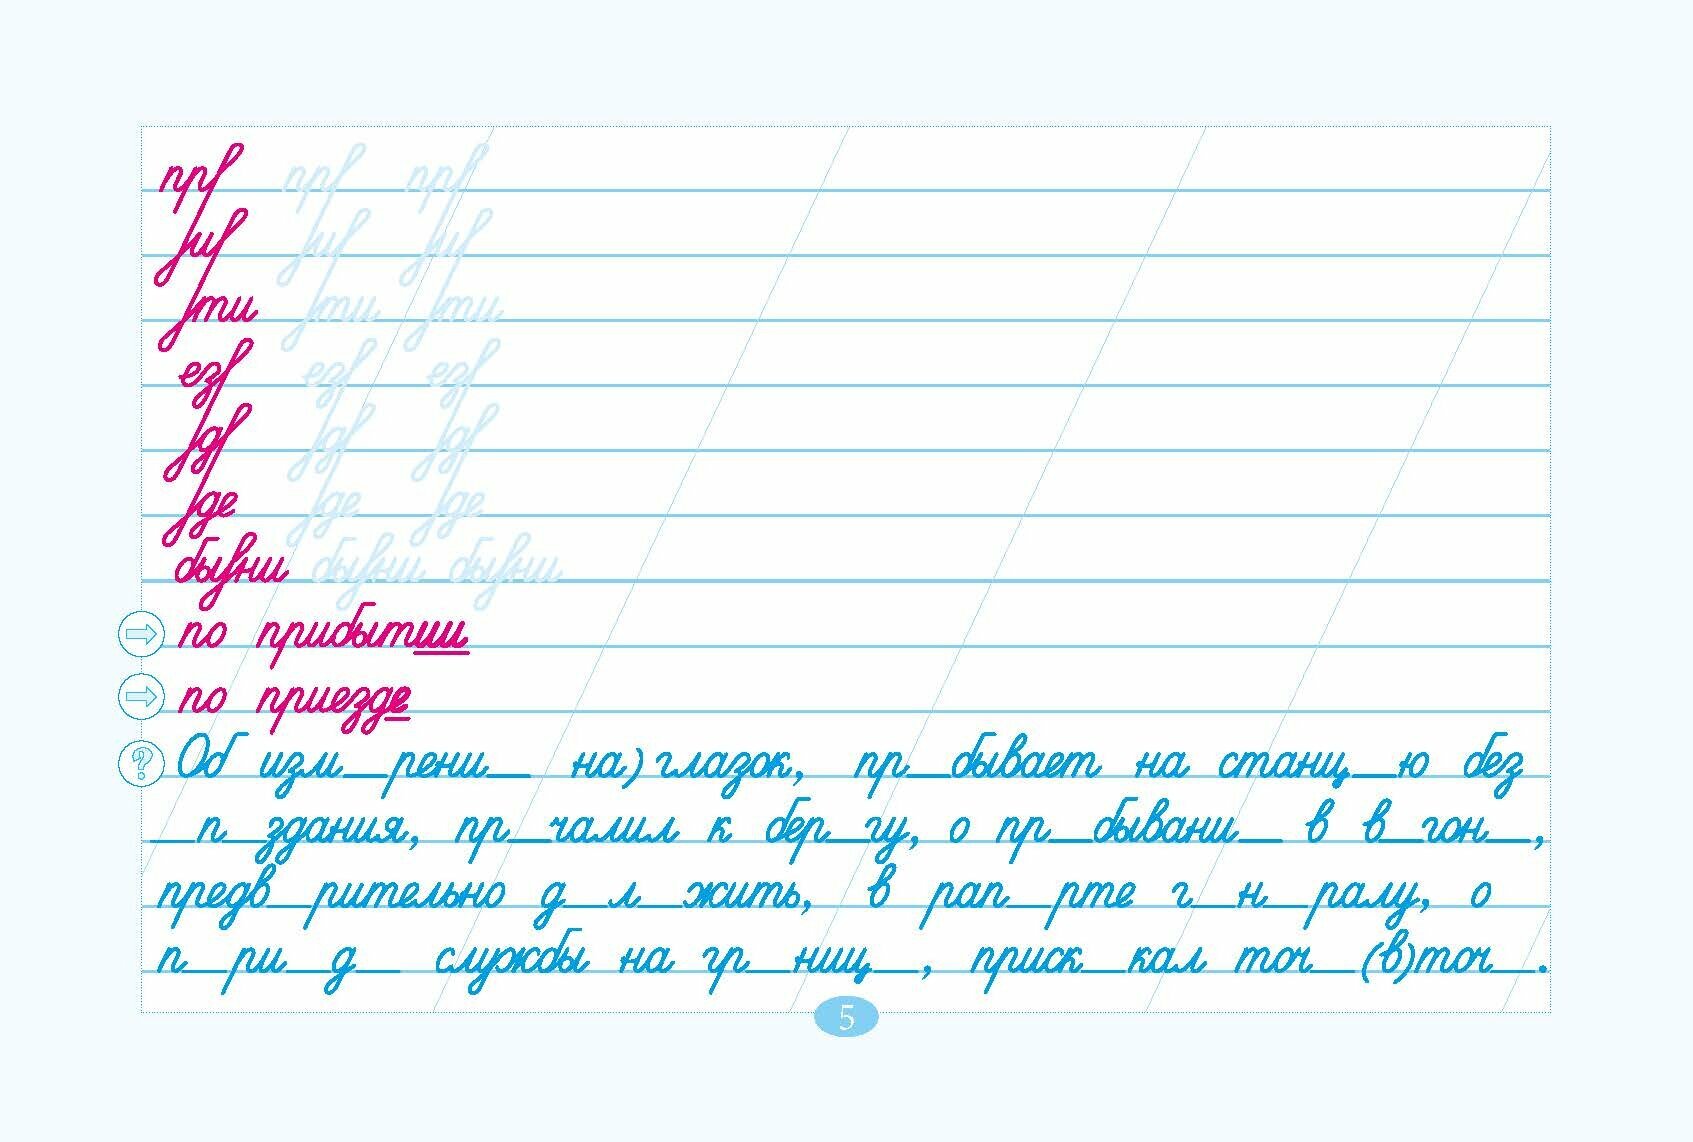 прf прf прf
ſиf ſиf ſиf
ſти ſти ſти
езf езf езf
ſдf ſдf ſдf
ſде ſде ſде
быſни быſни быſни
по прибытии
по приезде
Об изм_рени_ на)глазок, пр_бывает на станц_ю без
_п_здания, пр_чалил к бер_гу, о пр_бывани_ в в_гон_,
предв_рительно д_л_жить, в рап_рте г_н_ралу, о
п_ри_д_ службы на гр_ниц_, приск_кал точ_(в)точ_.
5